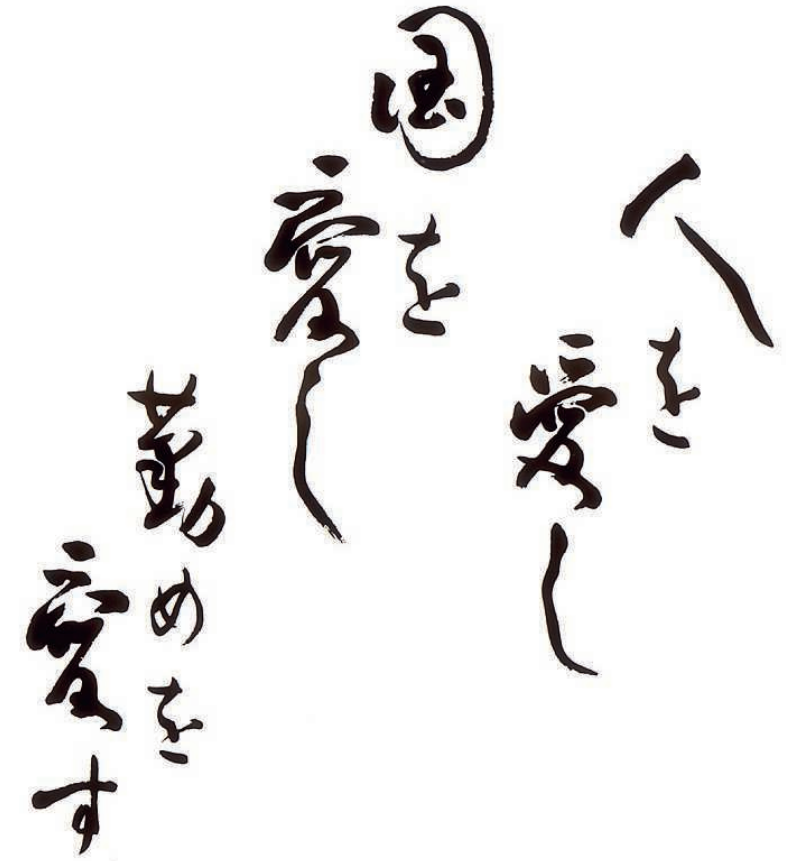 人を
愛し
国を
愛し
勤めを
愛す